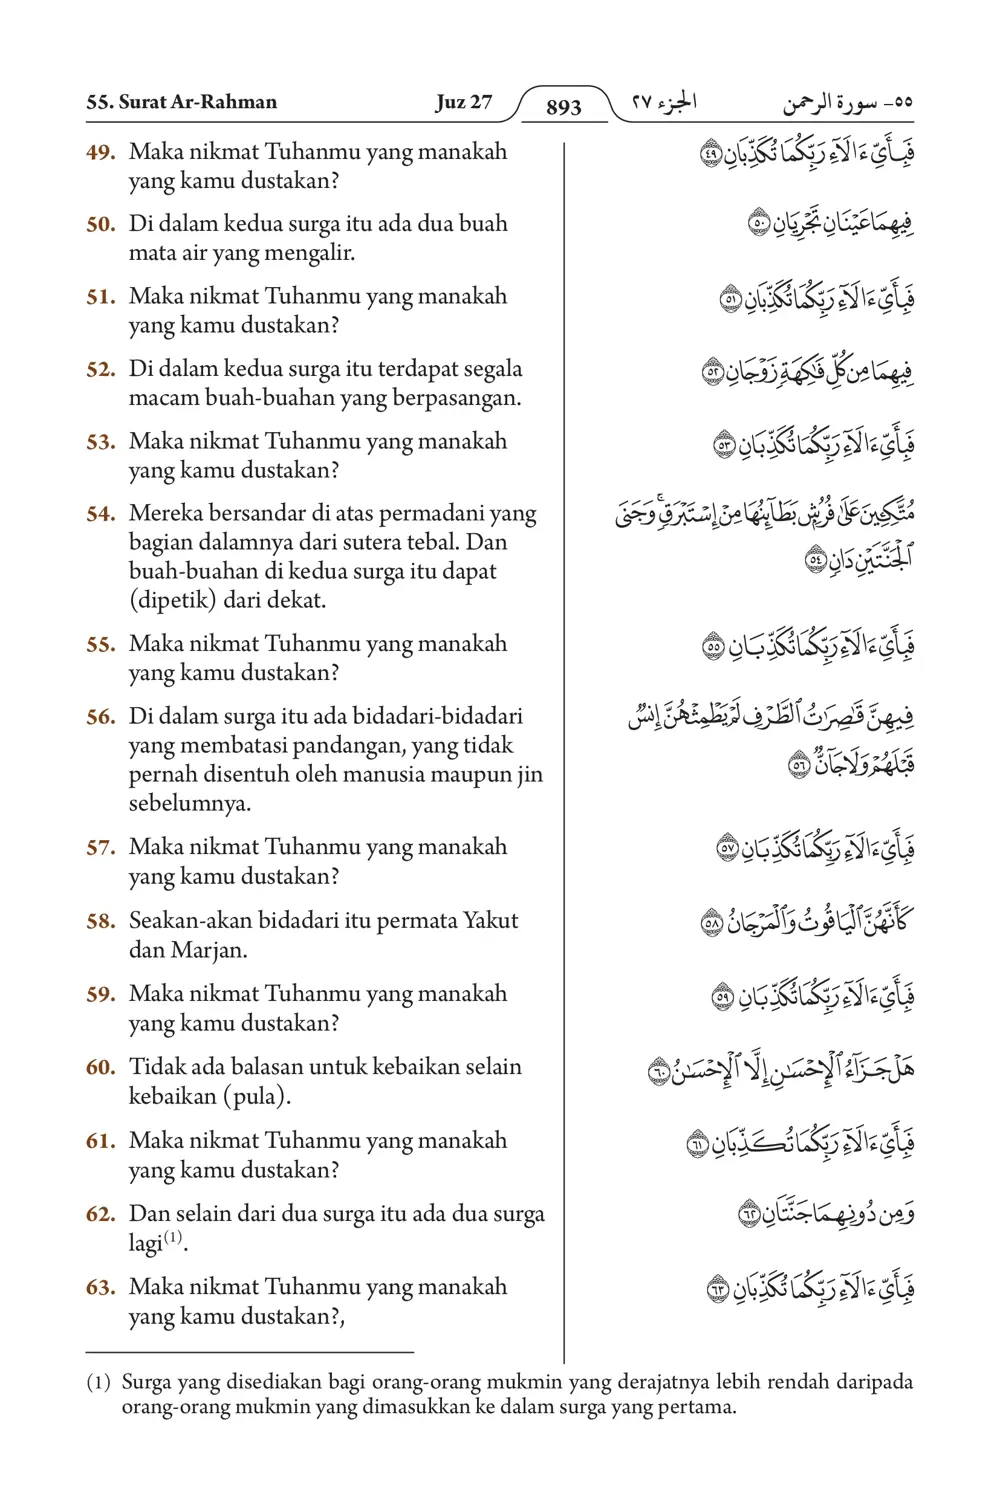 55. Surat Ar-Rahman Juz 27 893 الجزء ٢٧ ٥٥- سورة الرحمن
49. Maka nikmat Tuhanmu yang manakah
yang kamu dustakan?
50. Di dalam kedua surga itu ada dua buah
mata air yang mengalir.
51. Maka nikmat Tuhanmu yang manakah
yang kamu dustakan?
52. Di dalam kedua surga itu terdapat segala
macam buah-buahan yang berpasangan.
53. Maka nikmat Tuhanmu yang manakah
yang kamu dustakan?
54. Mereka bersandar di atas permadani yang
bagian dalamnya dari sutera tebal. Dan
buah-buahan di kedua surga itu dapat
(dipetik) dari dekat.
55. Maka nikmat Tuhanmu yang manakah
yang kamu dustakan?
56. Di dalam surga itu ada bidadari-bidadari
yang membatasi pandangan, yang tidak
pernah disentuh oleh manusia maupun jin
sebelumnya.
57. Maka nikmat Tuhanmu yang manakah
yang kamu dustakan?
58. Seakan-akan bidadari itu permata Yakut
dan Marjan.
59. Maka nikmat Tuhanmu yang manakah
yang kamu dustakan?
60. Tidak ada balasan untuk kebaikan selain
kebaikan (pula).
61. Maka nikmat Tuhanmu yang manakah
yang kamu dustakan?
62. Dan selain dari dua surga itu ada dua surga
lagi(1).
63. Maka nikmat Tuhanmu yang manakah
yang kamu dustakan?,
فَبِأَيِّ ءَالَآءِ رَبِّكُمَا تُكَذِّبَانِ ٤٩
فِيهِمَا عَيْنَانِ تَجْرِيَانِ ٥٠
فَبِأَيِّ ءَالَآءِ رَبِّكُمَا تُكَذِّبَانِ ٥١
فِيهِمَا مِن كُلِّ فَٰكِهَةٍ زَوْجَانِ ٥٢
فَبِأَيِّ ءَالَآءِ رَبِّكُمَا تُكَذِّبَانِ ٥٣
مُتَّكِـِٔينَ عَلَىٰ فُرُشٍۭ بَطَآئِنُهَا مِنْ إِسْتَبْرَقٍۚ وَجَنَى
ٱلْجَنَّتَيْنِ دَانٍ ٥٤
فَبِأَيِّ ءَالَآءِ رَبِّكُمَا تُكَذِّبَانِ ٥٥
فِيهِنَّ قَٰصِرَٰتُ ٱلطَّرْفِ لَمْ يَطْمِثْهُنَّ إِنسٌ
قَبْلَهُمْ وَلَا جَآنٌّ ٥٦
فَبِأَيِّ ءَالَآءِ رَبِّكُمَا تُكَذِّبَانِ ٥٧
كَأَنَّهُنَّ ٱلْيَاقُوتُ وَٱلْمَرْجَانُ ٥٨
فَبِأَيِّ ءَالَآءِ رَبِّكُمَا تُكَذِّبَانِ ٥٩
هَلْ جَزَآءُ ٱلْإِحْسَٰنِ إِلَّا ٱلْإِحْسَٰنُ ٦٠
فَبِأَيِّ ءَالَآءِ رَبِّكُمَا تُكَذِّبَانِ ٦١
وَمِن دُونِهِمَا جَنَّتَانِ ٦٢
فَبِأَيِّ ءَالَآءِ رَبِّكُمَا تُكَذِّبَانِ ٦٣
(1) Surga yang disediakan bagi orang-orang mukmin yang derajatnya lebih rendah daripada
orang-orang mukmin yang dimasukkan ke dalam surga yang pertama.